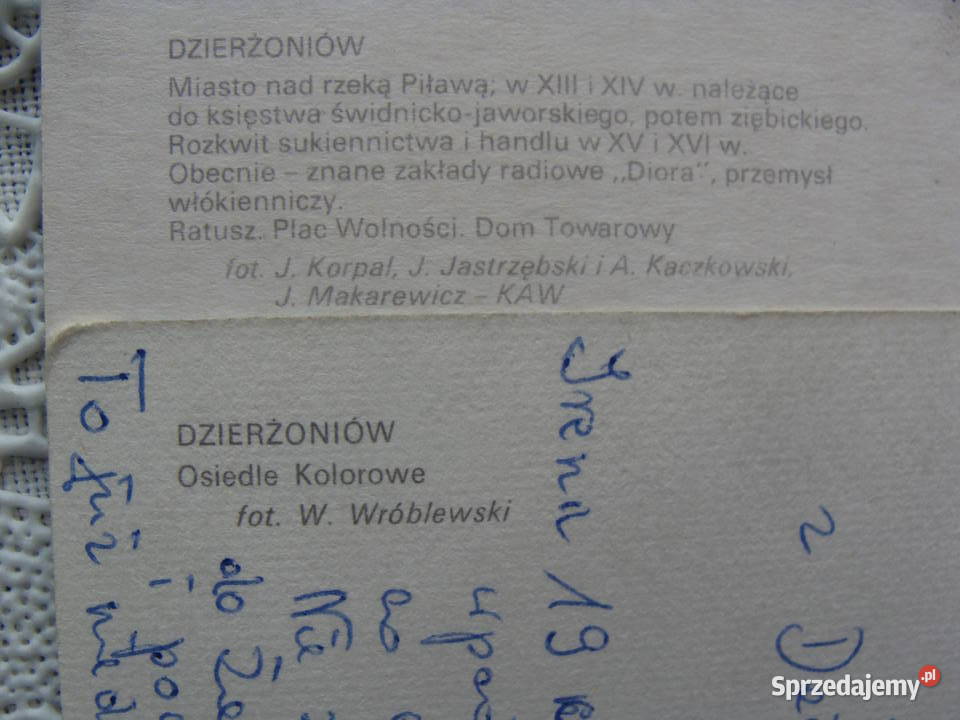 DZIERŻONIÓW
Miasto nad rzeką Piławą; w XIII i XIV w. należące
do księstwa świdnicko-jaworskiego, potem ziębickiego.
Rozkwit sukiennictwa i handlu w XV i XVI w.
Obecnie – znane zakłady radiowe „Diora", przemysł
włókienniczy.
Ratusz. Plac Wolności. Dom Towarowy
fot. J. Korpal, J. Jastrzębski i A. Kaczkowski,
J. Makarewicz – KAW
DZIERŻONIÓW
Osiedle Kolorowe
fot. W. Wróblewski
z
Irena 19
Nie
do
i
To już
Sprzedajemy.pl